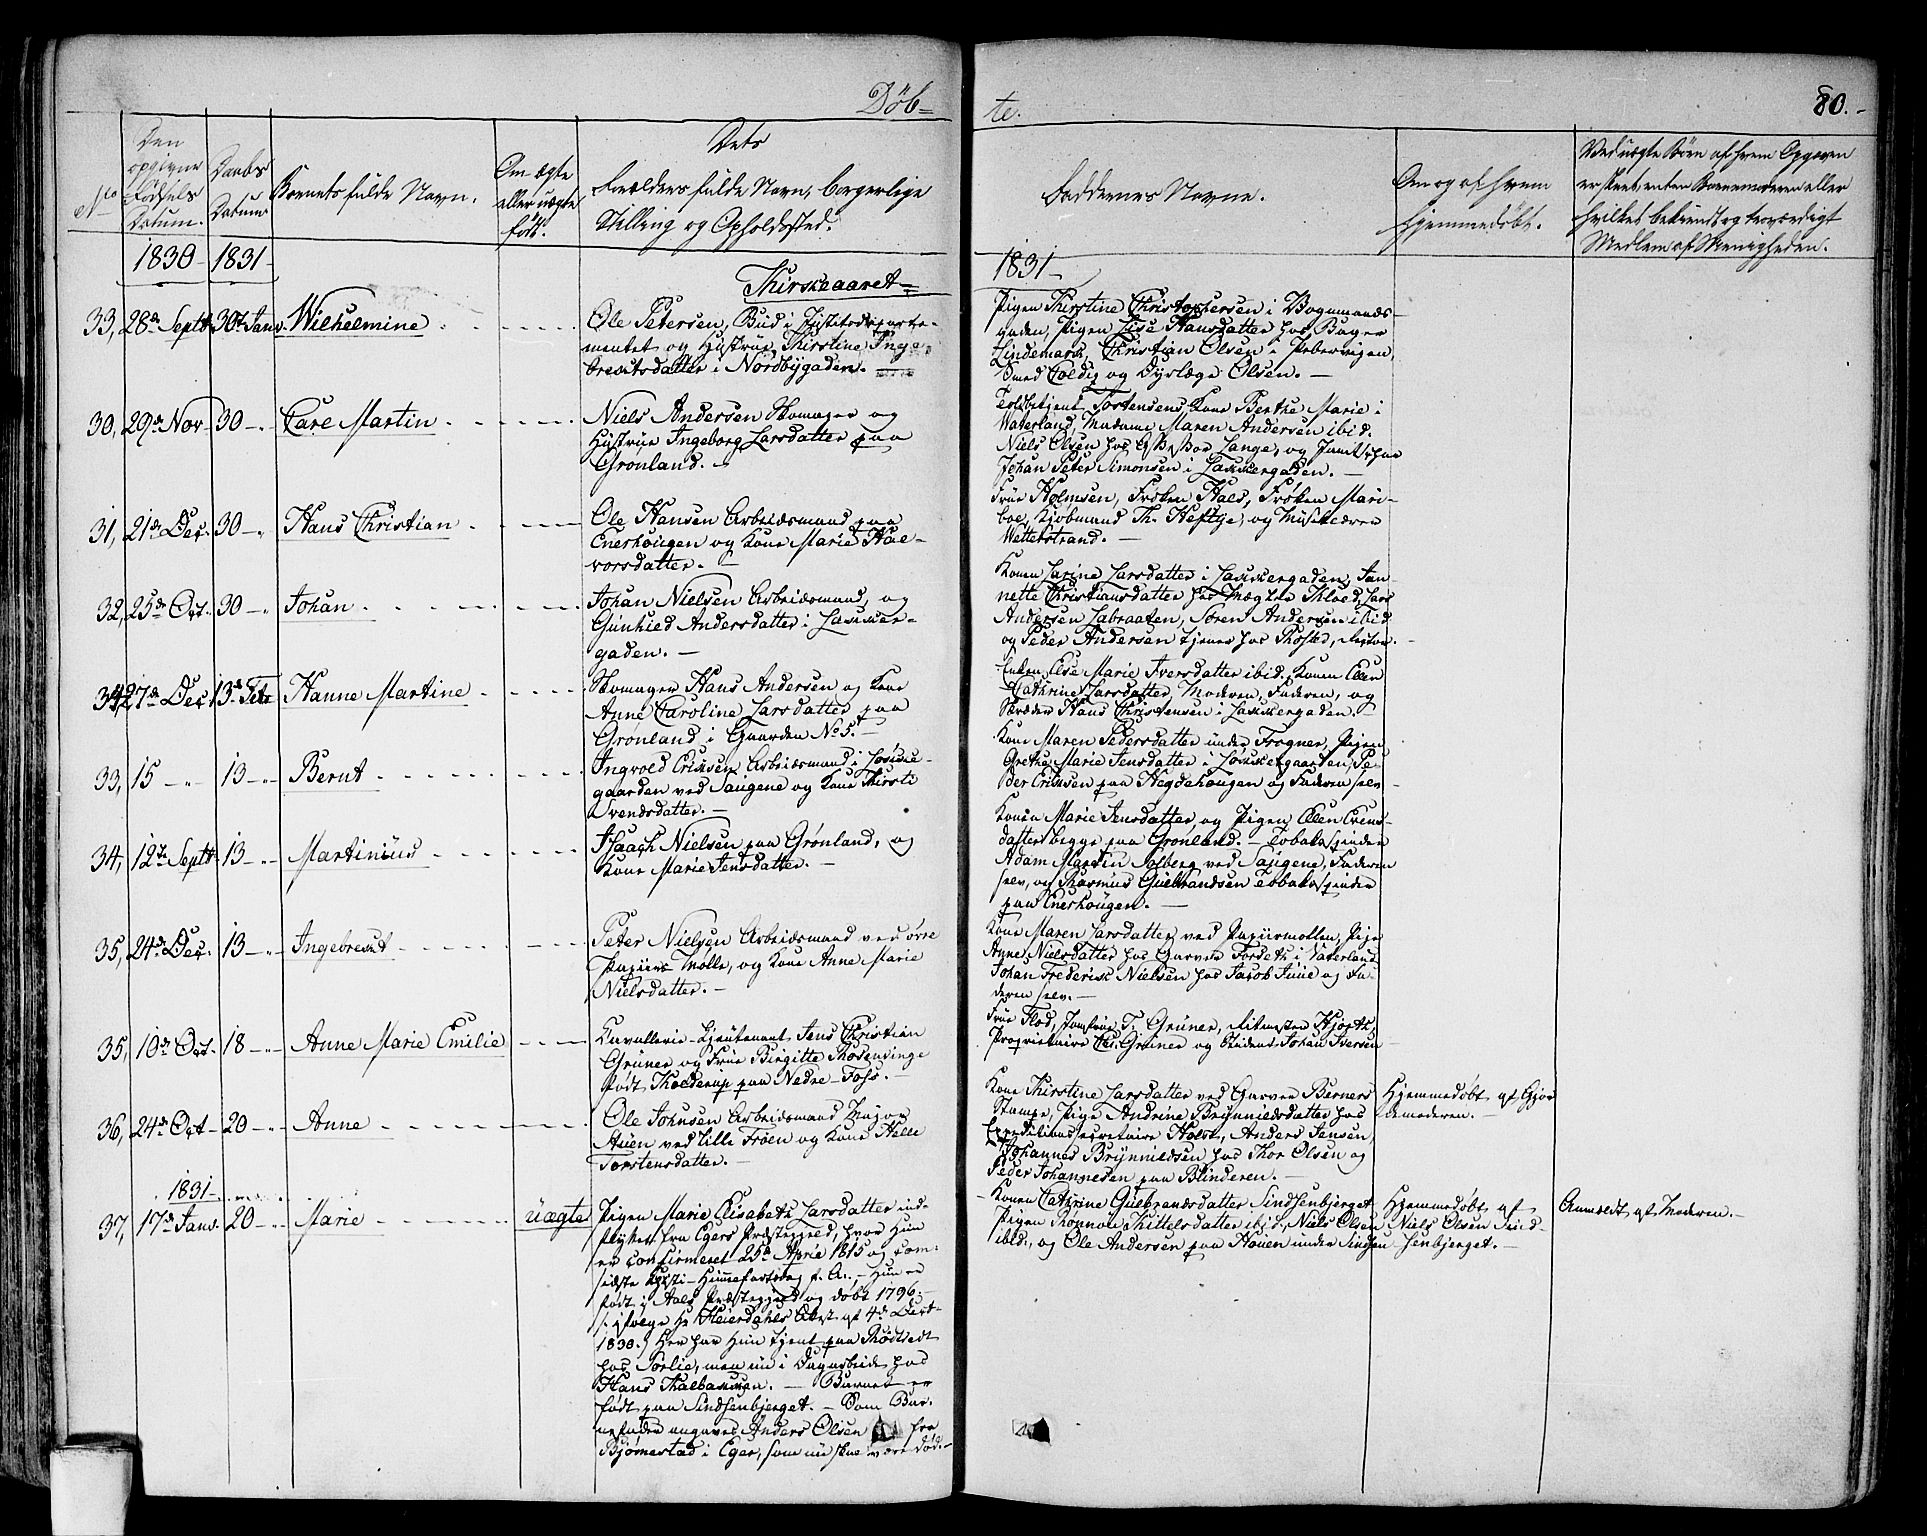 Döb=
te.
80.
No
Den opgivne Fødsels Datum.
Daabs Datum
Barnets fulde Navn.
Om ægte eller uægte født.
Dets
Forældres fulde Navn, borgerlige
Stilling og Opholdssted.
Faddernes Navne.
Om og af hvem
hjemmedøbt.
Ved uægte Børn af hvem Opgaven
er skeet, enten Barnemoderen eller
hvilket bekiendt og troværdigt
Medlem af Menigheden.
1830 1831
Kirkeaaret
1831
33, 28de Septbr 30te Janv. Wilhelmine
Ole Petersen, Bud i Justitsdeparte-
mentet og Hustrue Kirstine Inge-
brechtsdatter i Nordbygaden.
Pigen Kirstine Christophersen i Vognmands-
gaden, Pigen Lise Hansdatter hos Bager
Lindemark, Christian Olsen i Pebervigen,
Smed Coldig og Dyrlæge Olsen.
30, 29de Nov 30 Carl Martin
Niels Andersen Skomager og
Hustrue Ingeborg Larsdatter paa
Grønland.
Toldbetjent Torstensens Kone Berthe Marie i
Waterland, Madame Maren Andersen ibid.
Niels Olsen hos Lange, og
Johan Peter Simonsen i Lakkergaden.
31, 21de Dec. 30 Hans Christian
Ole Hansen Arbeidsmand paa
Enerhougen og Kone Marie Hal-
vorsdatter.
Frue Holmsen, Frøken Hals, Frøken Mari-
boe, Kjøbmand Th. Heftye, og Musiklærer
Wetterstrand.
32, 25de Oct. 30 Johan
Johan Nielsen Arbeidsmand, og
Gunhild Andersdatter i Lakker-
gaden.
Konen Larine Larsdatter i Lakkergaden, Jan-
nette Christiansdatter hos Mægler Lars
Andersen Labraaten, Søren Andersen ibid.
og Peder Andersen tjener hos
34, 27de Dec. 13de Febr. Hanne Martine
Skomager Hans Andersen og Kone
Anne Caroline Larsdatter paa
Grønland i Gaarden No 5.
Enken Else Marie Iversdatter ibid. Konen Ellen
Cathrine Larsdatter, Moderen, Faderen, og
Skræder Hans Christensen i Lakkergaden.
33, 15 13 Bernt
Ingvold Ericksen Arbeidsmand i
gaarden ved Saugene og Kone Kirsti
Svendsdatter.
Kone Maren Pedersdatter under Frogner, Pigen
Grethe Marie Jensdatter i Pe-
der Ericksen paa Hegdehougen og Faderen selv
34, 12te Septbr 13 Martinius
Isaach Nielsen paa Grønland, og
Kone Marie Jensdatter.
Konen Marie Jensdatter, og Pigen Ellen Evens-
datter begge paa Grønland. Tobaksspinder
Adam Martin Solberg ved Saugene, Faderen
selv, og Rasmus Gulbrandsen Tobaksspinder
paa Enerhougen.
35, 24de Dec. 13 Ingebreckt
Peter Nielsen Arbeidsmand ved øvre
Papiirs Mølle, og Kone Anne Marie
Nielsdatter.
Kone Maren Larsdatter ved Papiirmøllen, Pige
Anne Nielsdatter hos Garver Fordeth i Vaterland
Johan Frederik Nielsen hos Jacob Juul og Fa-
deren selv.
35, 10de Oct. 18 Anne Marie Emilie
Kavallerie-Lieutenant Jens Christian
Grüner og Frue Birgitte Rosenvinge
født Kolderup paa Nedre-Foss.
Frue Flod, Jomfrue T. Grüner, Ritmester Hjorth,
Proprietaire Chr. Grüner og Student Johan Iversen
36, 24de Oct 20 Anne
Ole Johnsen Arbeidsmand
Stuen ved Lille Frøen og Kone Helle
Torstensdatter.
Kone Kirstine Larsdatter ved Garver Berners
Stampe, Pige Andrine Brynnildsdatter hos
Expeditionssecretaire Holst, Anders Jensen,
Johannes Brynnildsen hos Thor Olsen og
Peder Johannesen paa Blinderen.
Hjemmedøbt af Gjor
demoderen.
1831
37, 17de Janv. 20 Marie uægte
Pigen Marie Elisabeth Larsdatter ind-
flyttet fra Egers Præstegjeld, hvor Hun
er confirmeret 25de April 1815 og com.
sidste Christi-Himmelfartsdag f. A. Hun er
født i Aals Præstegjeld og døbt 1796.
(ifølge Hr Heierdahls Attest af 4de Decbr
1830.) Her har Hun tjent paa Rødtvedt
hos Sørlie, men nu i Dagarbeide hos
Hans Kalbakken. Barnet er
født paa Sindsenbjerget. Som Bar-
nefader angives Anders Olsen fra
Bjørnestad i Eger, som nu skal være død.
Konen Cathrine Gulbrandsdatter Sindsenbjerget
Pigen Kittelsdatter ibid. Niels Olsen
ibid., og Ole Andersen paa Houen under Sindsen
Hjemmedøbt af
Niels Olsen Sind-
senbjerget.
Anmeldt af Moderen.